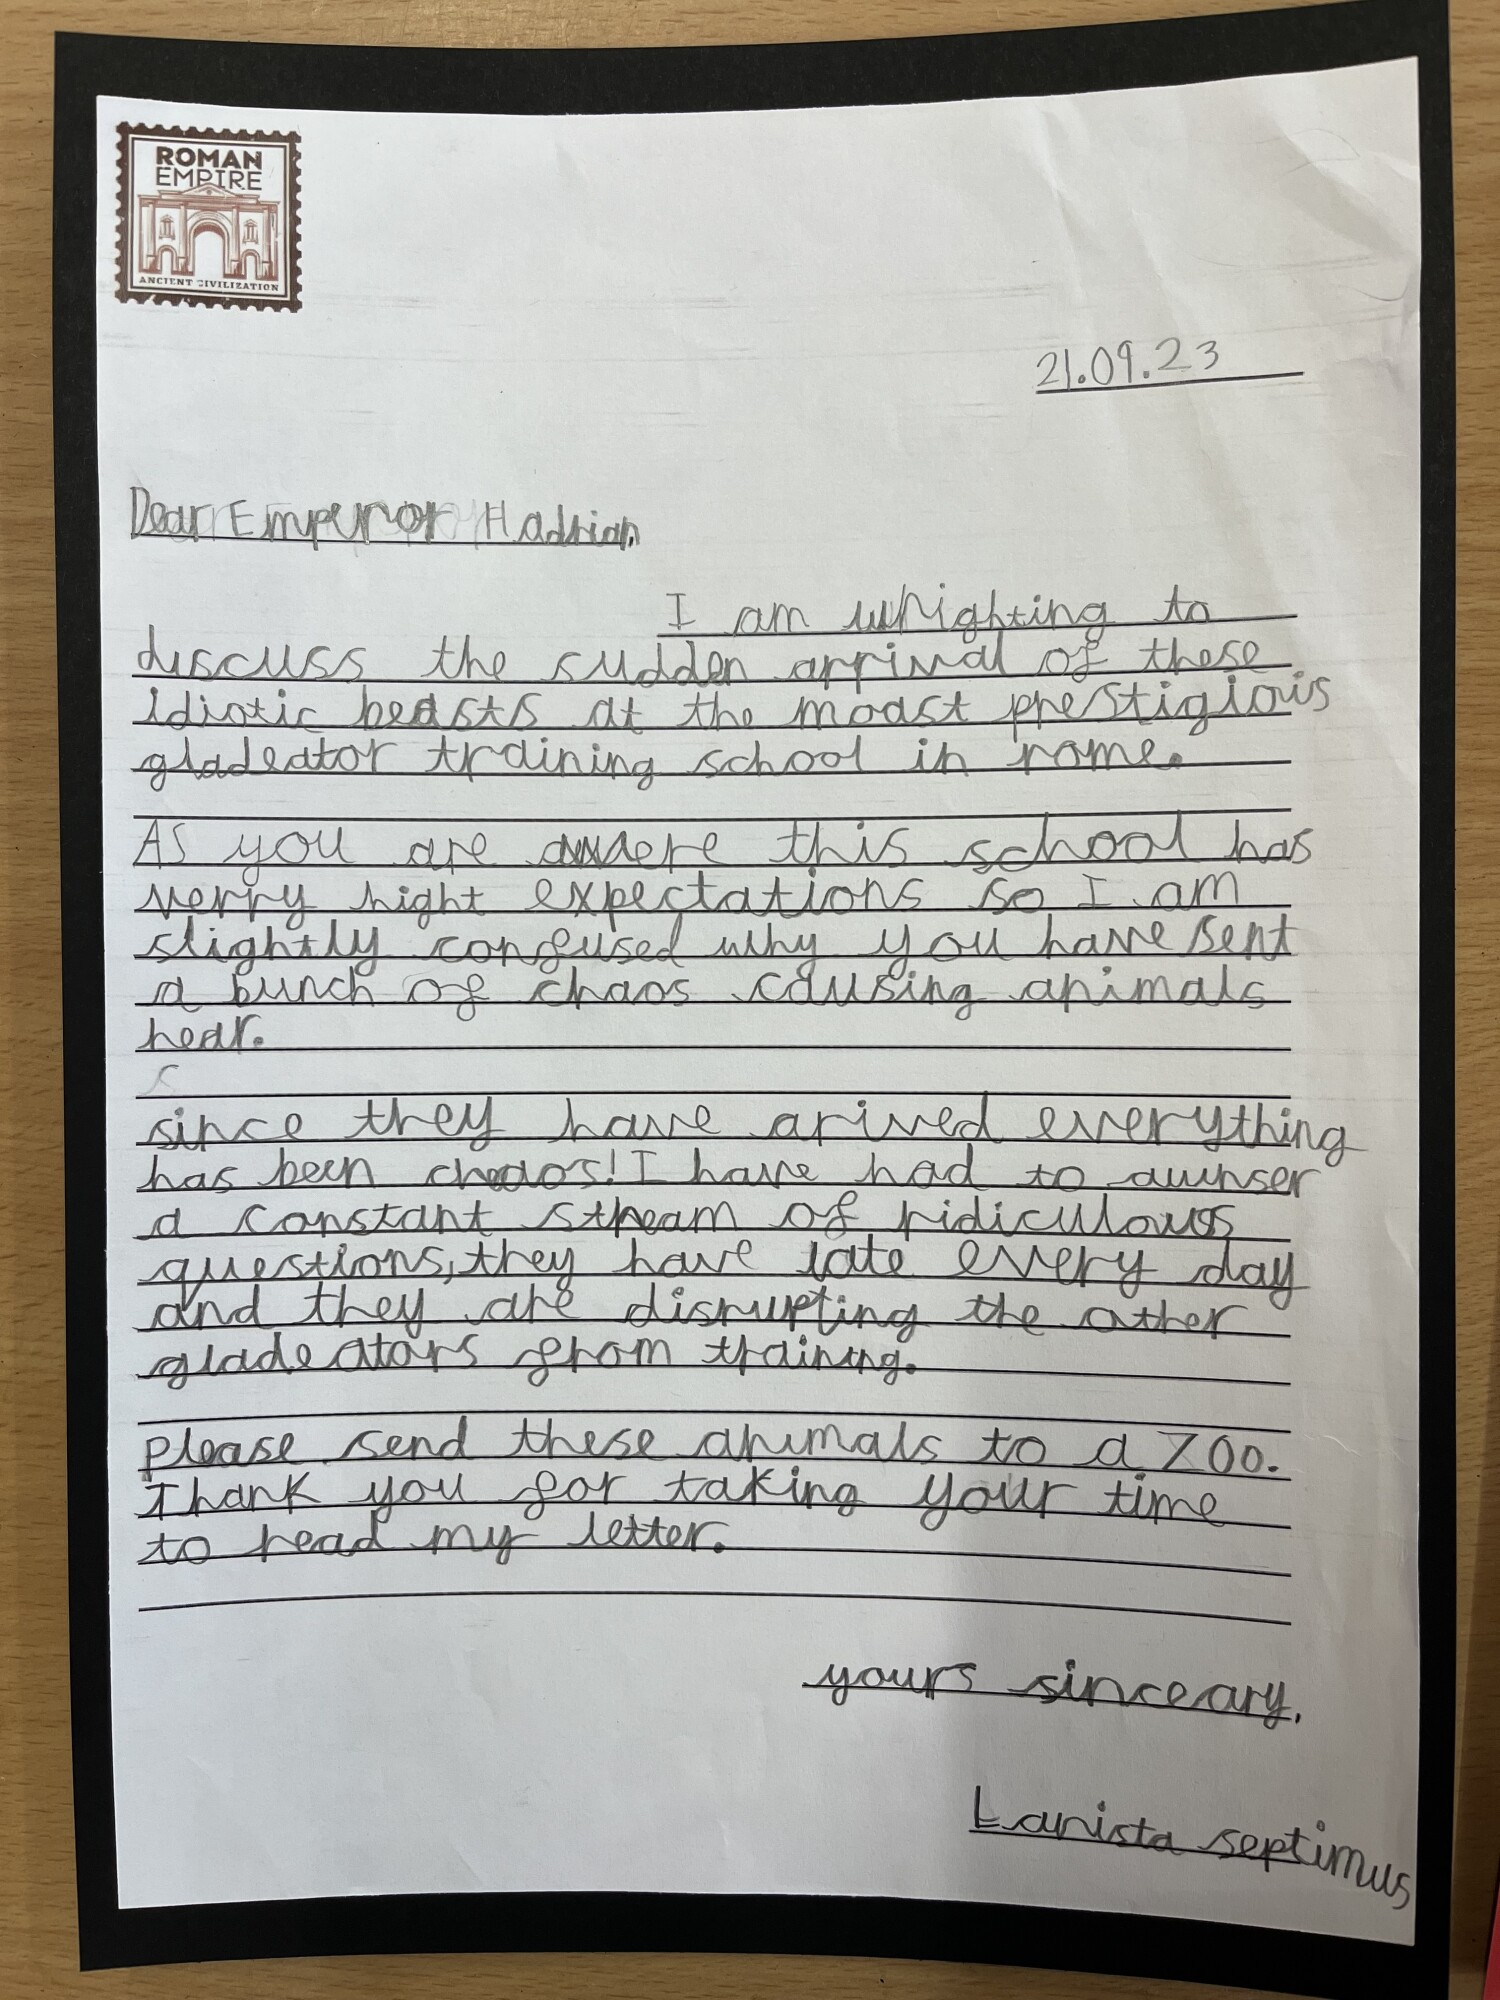 ROMAN
EMPIRE
ANCIENT CIVILIZATION
21.09.23
Dear Emperor Hadrian,
I am whrighting to
discuss the sudden arrival of these
idiotic beasts at the moast prestigious
gladeator training school in rome.
As you are awere this school has
verry hight expectations so I am
slightly confused why you have sent
a bunch of chaos causing animals
hear.
since they have arived everything
has been chaos! I have had to awnser
a constant stream of ridiculouss
questions, they have late every day
and they are disrupting the other
gladeators from training.
please send these animals to a zoo.
Thank you for taking your time
to read my letter.
yours sinceary,
Lanista septimus